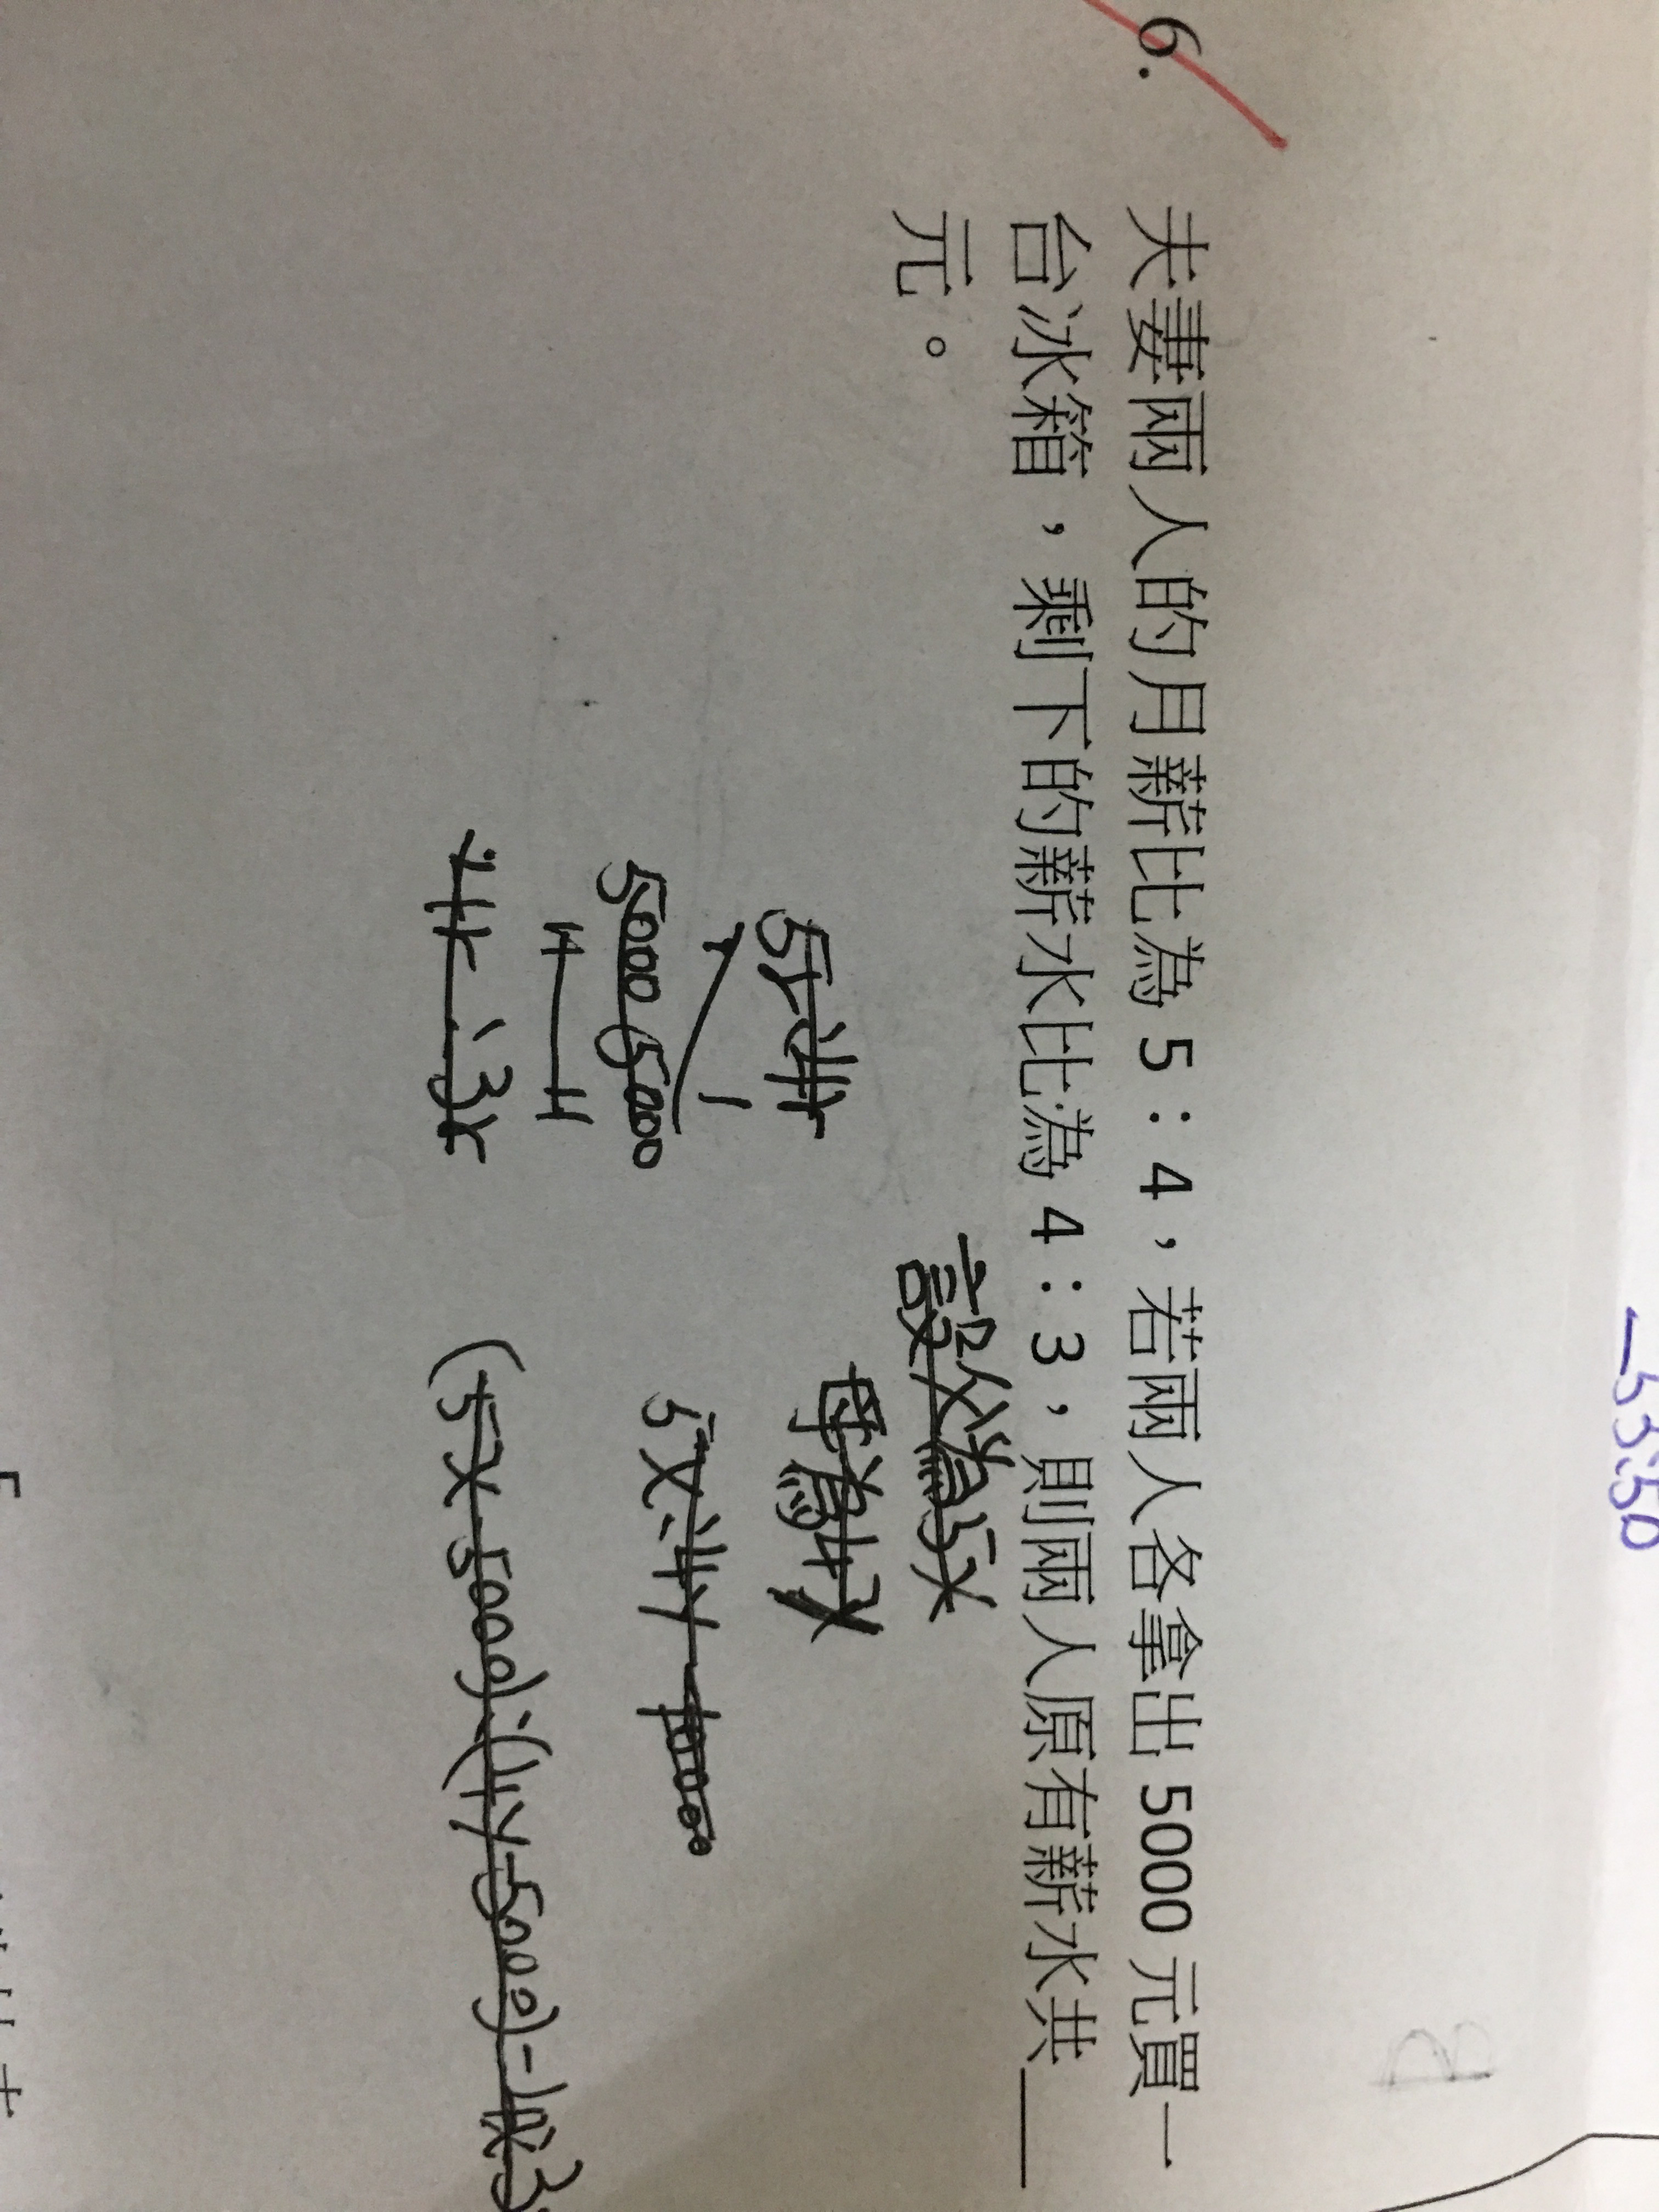 5350
B
6.
夫妻兩人的月薪比為 5：4，若兩人各拿出 5000 元買一
台冰箱，剩下的薪水比為 4：3，則兩人原有薪水共___
元。
設父為5x
母為4x
5r:4r
5000 5000
4r:3r
5x:4y
(5x-5000):(4y-5000)=